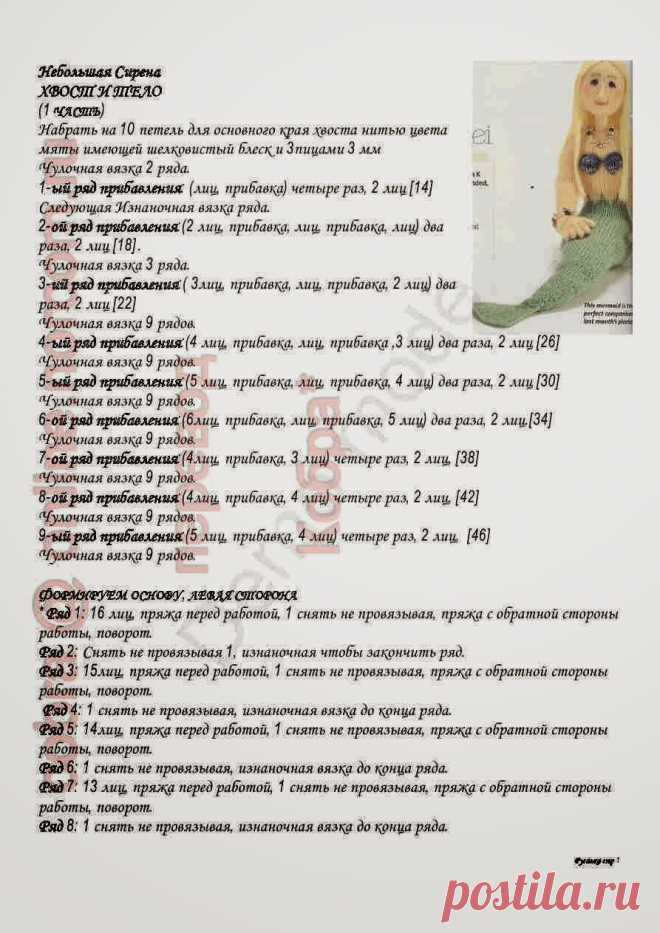 Небольшая Сирена
ХВОСТ И ТЕЛО
(1 ЧАСТЬ)
Набрать на 10 петель для основного края хвоста нитью цвета
мяты имеющей шелковистый блеск и 3пицами 3 мм
Чулочная вязка 2 ряда.
1-ый ряд прибавления: (лиц, прибавка) четыре раз, 2 лиц [14]
Следующая Изнаночная вязка ряда.
2-ой ряд прибавления: (2 лиц, прибавка, лиц, прибавка, лиц) два
раза, 2 лиц [18].
Чулочная вязка 3 ряда.
3-ий ряд прибавления: ( 3лиц, прибавка, лиц, прибавка, 2 лиц) два
раза, 2 лиц [22]
Чулочная вязка 9 рядов.
4-ый ряд прибавления: (4 лиц, прибавка, лиц, прибавка ,3 лиц) два раза, 2 лиц [26]
Чулочная вязка 9 рядов.
5-ый ряд прибавления: (5 лиц, прибавка, лиц, прибавка, 4 лиц) два раза, 2 лиц [30]
Чулочная вязка 9 рядов.
6-ой ряд прибавления: (6лиц, прибавка, лиц, прибавка, 5 лиц) два раза, 2 лиц,[34]
Чулочная вязка 9 рядов.
7-ой ряд прибавления: (4лиц, прибавка, 3 лиц) четыре раз, 2 лиц, [38]
Чулочная вязка 9 рядов.
8-ой ряд прибавления: (4лиц, прибавка, 4 лиц) четыре раз, 2 лиц, [42]
Чулочная вязка 9 рядов.
9-ый ряд прибавления: (5 лиц, прибавка, 4 лиц) четыре раз, 2 лиц, [46]
Чулочная вязка 9 рядов.
ФОРМИРУЕМ ОСНОВУ, ЛЕВАЯ СТОРОНА
* Ряд 1: 16 лиц, пряжа перед работой, 1 снять не провязывая, пряжа с обратной стороны
работы, поворот.
Ряд 2: Снять не провязывая 1, изнаночная чтобы закончить ряд.
Ряд 3: 15лиц, пряжа перед работой, 1 снять не провязывая, пряжа с обратной стороны
работы, поворот.
Ряд 4: 1 снять не провязывая, изнаночная вязка до конца ряда.
Ряд 5: 14лиц, пряжа перед работой, 1 снять не провязывая, пряжа с обратной стороны
работы, поворот.
Ряд 6: 1 снять не провязывая, изнаночная вязка до конца ряда.
Ряд 7: 13 лиц, пряжа перед работой, 1 снять не провязывая, пряжа с обратной стороны
работы, поворот.
Ряд 8: 1 снять не провязывая, изнаночная вязка до конца ряда.
This mermaid is the
perfect companion
last month's pirate
перевод
Кобра*
postila.ru